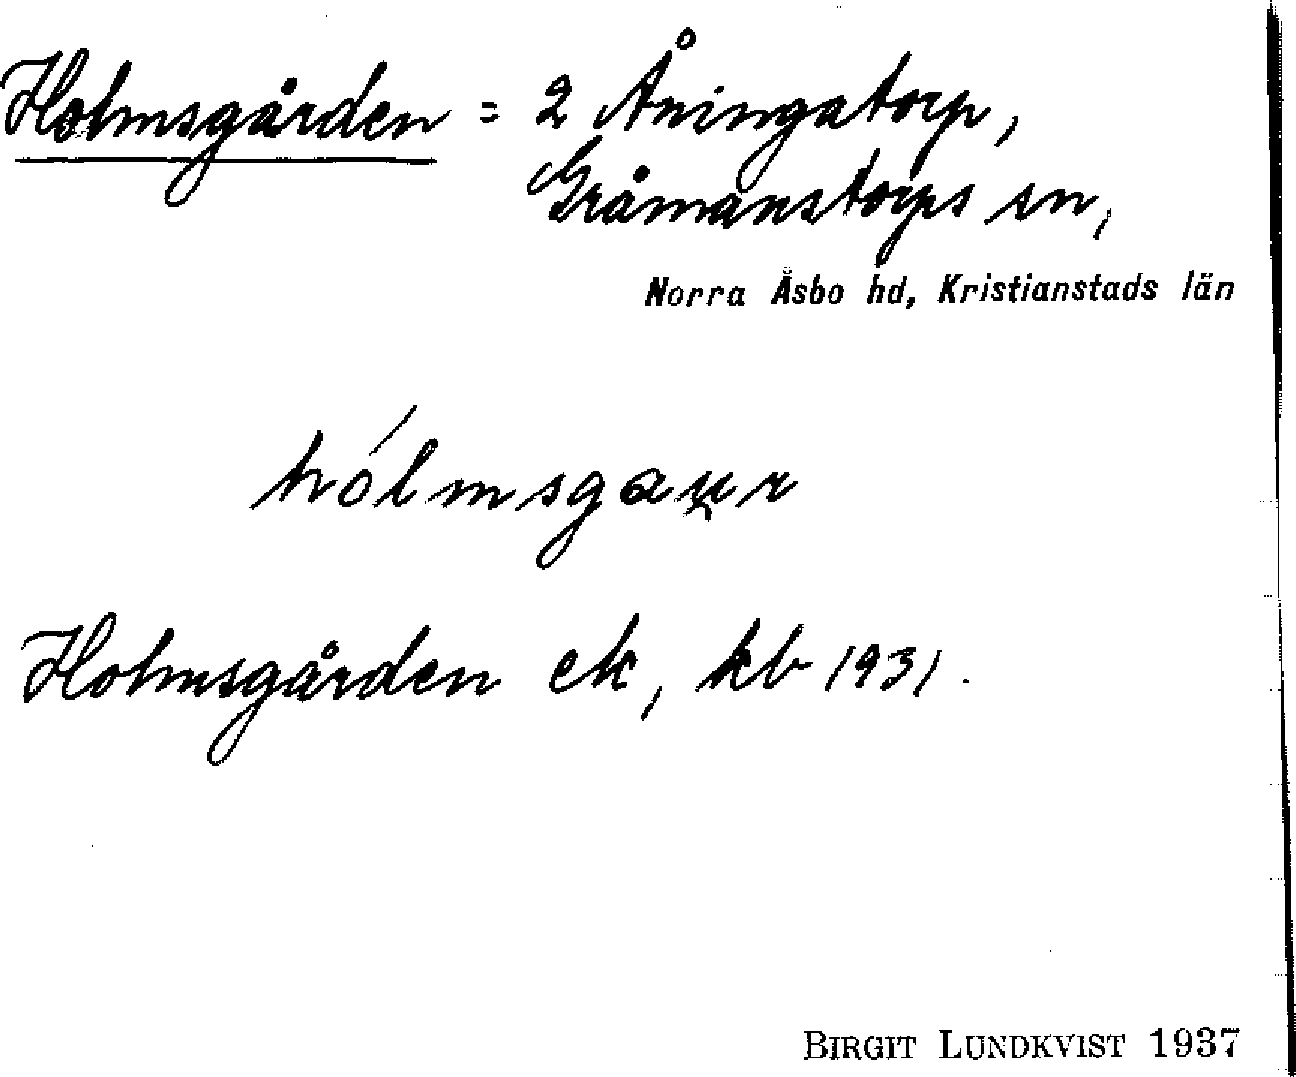 Holmsgården = 2 Åningatorp,
Gråmanstorps sn,
Norra Åsbo hd, Kristianstads län
Holmsgården ek, kb 1931.
BIRGIT LUNDKVIST 1937